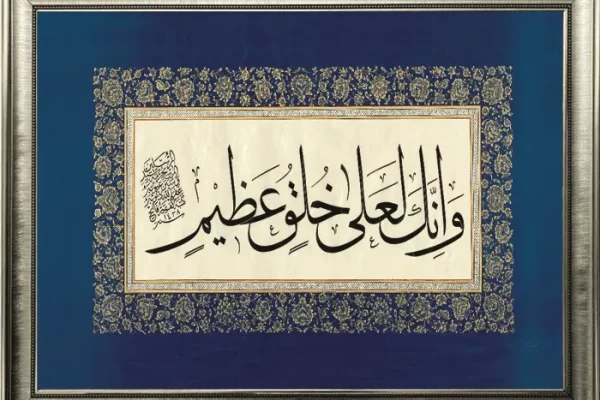 وَإِنَّكَ لَعَلَى خُلُقٍ عَظِيمٍ
١٤٣٨